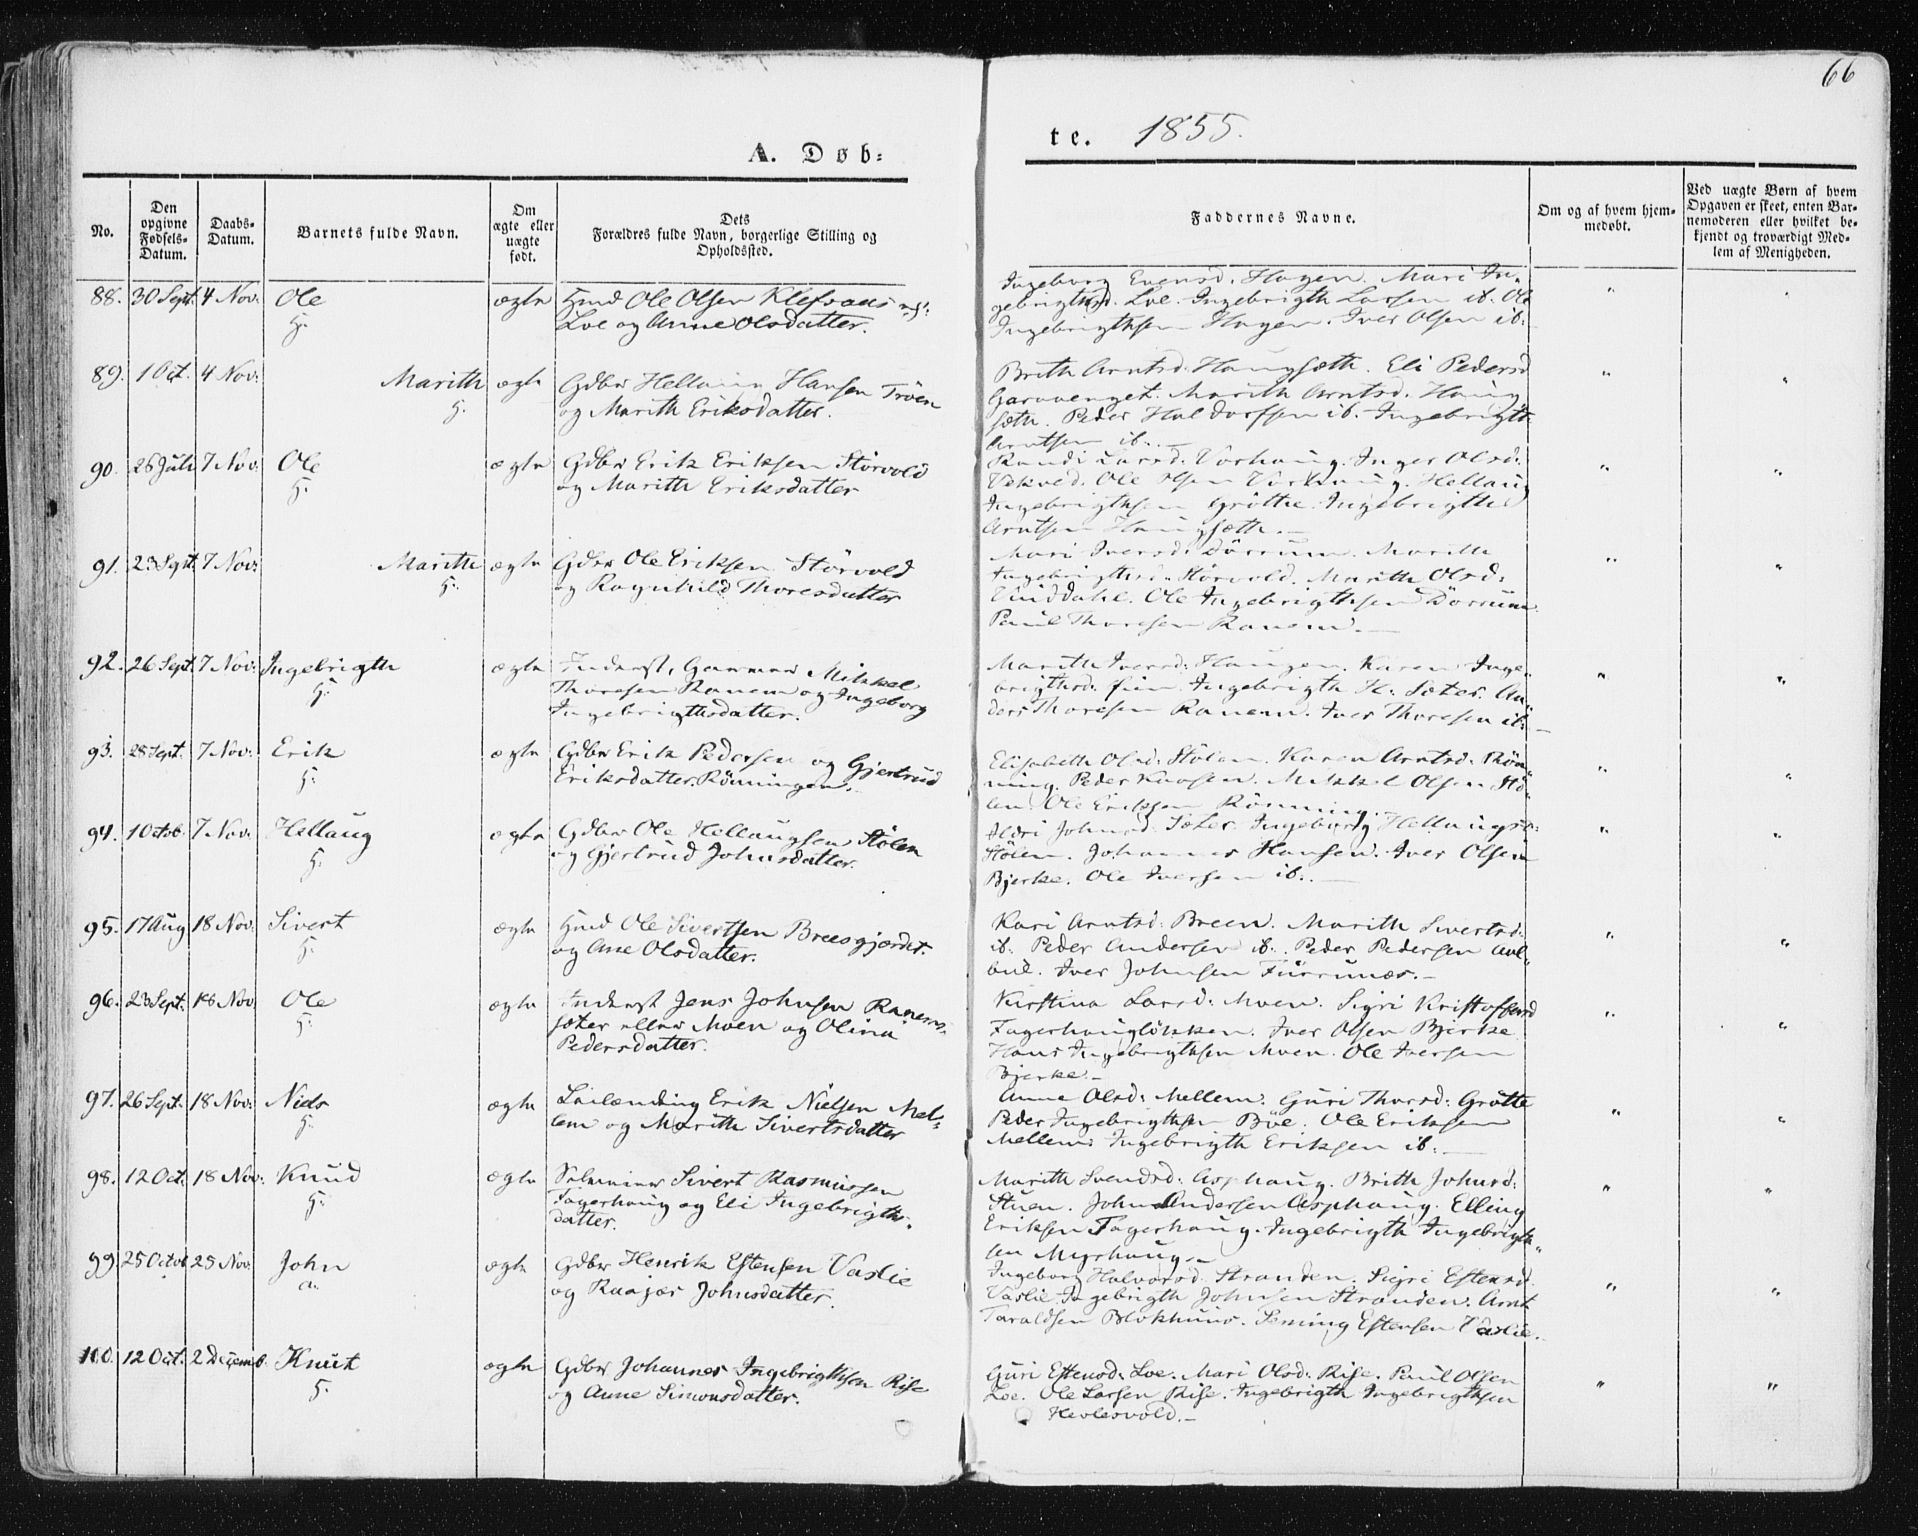 66
A. Døb-
te. 1855.
No.
Den opgivne Fødsels-Datum.
Daabs-Datum.
Barnets fulde Navn.
Om ægte eller uægte født.
Dets Forældres fulde Navn, borgerlige Stilling og Opholdssted.
Faddernes Navne.
Om og af hvem hjem-medøbt.
Ved uægte Børn af hvem Opgaven er skeet, enten Bar-nemoderen eller hvilket be-kjendt og troværdigt Med-lem af Menigheden.
88. 30 Sept. 4 Nov: Ole ægte Hmd Ole Olsen
h: Loe og Anne Olsdatter.
Ingeborg Evensd. Hagen. Mari In-
gebrigthsd. Loe. Ingebrigth Larsen ib. Ole
Ingebrigthsen Hagen. Iver Olsen ib:
89. 1 Oct. 4 Nov: Marith ægte Gdbr Hellaug Hansen Tröen
h: og Marith Eriksdatter.
Brith Arntsd. Haugsæth. Eli Pedersd
Garavenget. Marith Arntsd. Haug
sæth. Peder Haldorssen ib. Ingebrigth
Arntsen ib.
90. 26 Juli 7 Nov: Ole ægte Gdbr Erik Eriksen Störvold
h: og Marith Eriksdatter
Randi Larsd: Vorhaug. Inger Olsd:
Vekved. Ole Olsen Vorhaug. Hellaug
Ingebrigthsen Gröthe. Ingebrigth
Arntsen Haugsæth.
91. 23 Sept 7 Nov: Marith ægte Gdbr Ole Eriksen Störvold
h: og Ragnhild Thoresdatter
Mari Iversd: Dörrum. Marith
Ingebrigthsd. Störvold. Marith Olsd:
Vinddahl. Ole Ingebrigthsen Dörrum
Paul Thoresen Ranem.
92. 26 Sept. 7 Nov: Ingebrigth ægte Inderst, Garver Mikkel
h: Thoresen Ranem og Ingeborg
Ingebrigthsdatter.
Marith Iversd: Haugen. Karen Inge-
brigthsd: Ingebrigth H: Sæter. An-
ders Thoresen Ranem. Iver Thoresen ib:
93. 28 Sept. 7 Nov: Erik ægte Gdbr Erik Pedersen og Gjertrud
h: Eriksdatter Rönningen.
Elisabeth Olsd: Stölen. Karen Arntsd: Rön-
ning. Peder Mikkel Olsen Stö-
len. Ole Eriksen Rönning.
94. 1 Octob. 7 Nov: Hellaug ægte Gdbr Ole Hellaugsen Stölen
h: og Gjertrud Johnsdatter.
Johnsd: Sæter. Ingeborg Hellaugsd:
Stölen. Johannes Hansen. Iver Olsen
Bjerke. Ole Iversen ib:.
95. 17 Aug 18 Nov: Sivert ægte Hmd Ole Sivertsen Breesgjerdet.
h: og Ane Olsdatter.
Kari Arntsd: Breen. Marith Sivertsd:
ib: Peder Andersen ib: Peder Pedersen Aal-
bue. Iver Johnsen Furrunæs.
96. 23 Sept: 18 Nov: Ole ægte Inderst Jens Johnsen Ranems-
h: sæter eller Moen og Olina
Pedersdatter.
Kirstina Larsd: Moen. Sigri Kristoffersd
Fagerhauglökken. Iver Olsen Bjerke
Hans Ingebrigthsen Moen. Ole Iversen
Bjerke.
97. 26 Sept: 18 Nov: Niels ægte Leilænding Erik Nielsen Mel-
h: lem og Marith Sivertsdatter
Anne Olsd: Mellem. Guri Thorsd: Gröthe
Peder Ingebrigthsen Böe. Ole Eriksen
Mellem: Ingebrigth Eriksen ib:
98. 12 Oct: 18 Nov: Knud ægte Sivert Rasmussen
h: Fagerhaug og Eli Ingebrigth-
datter.
Marith Svendsd: Asphaug. Brith Johnsd:
Stuen. John Andersen Asphaug. Elling
Eriksen Fagerhaug. Ingebrigth Ingebrigth-
sen Myrhaug.
99. 25 Octob 25 Nov. John ægte Gdbr Henrik Estensen Vaslie
a. og Johnsdatter.
Ingeborg Halvorsd. Stranden. Sigri Estensd.
Vaslie. Ingebrigth Johnsen Stranden. Arnt
Taraldsen Blokhuus. Estensen Vaslie.
100. 12 Oct: 2 Decemb. Knut ægte Gdbr Johannes Ingebrigthsen Rise
h. og Anne Simonsdatter.
Guri Estensd: Loe. Mari Olsd: Rise. Paul Olsen
Loe. Ole Larsen Rise. Ingebrigth Ingebrigthsen
Hevlesvold.